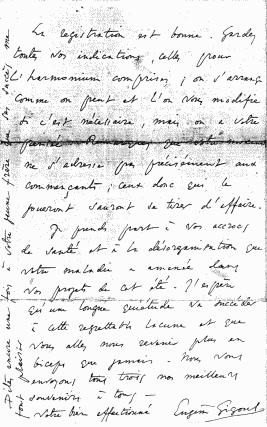 La registration est bonne. Gardez
toutes vos indications, celles pour
l'harmonium comprises ; on s'arrange
comme on peut et l'on vous modifie
si c'est nécessaire, mais on a votre
pensée. Remarquez que votre
ne s'adresse pas précisément aux
commerçants ; ceux donc qui le
joueront sauront se tirer d'affaire.
Je prends part à vos accrocs
de santé et à la désorganisation que
votre maladie a amenée dans
vos projets de cet été. J'espère
qu'une longue quiétude va succéder
à cette regrettable lacune et que
vous allez nous revenir plus en
biceps que jamais. Nous vous
envoyons tous trois nos meilleurs
souvenirs à tous
votre bien affectionné Eugène Gigout
Dites encore une fois à votre jeune frère que son succès me
fait plaisir